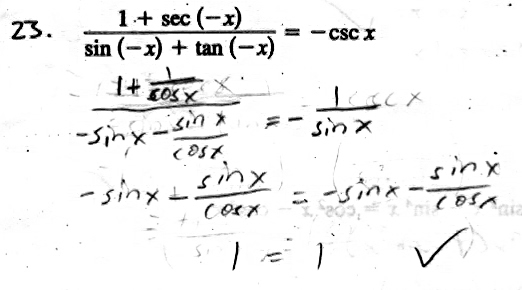 23. (1 + sec (−x)) / (sin (−x) + tan (−x)) = −csc x
(1 + 1/cos x) / (−sin x − sin x/cos x) = − 1/sin x
−sin x − sin x/cos x = −sin x − sin x/cos x
1 = 1 ✓